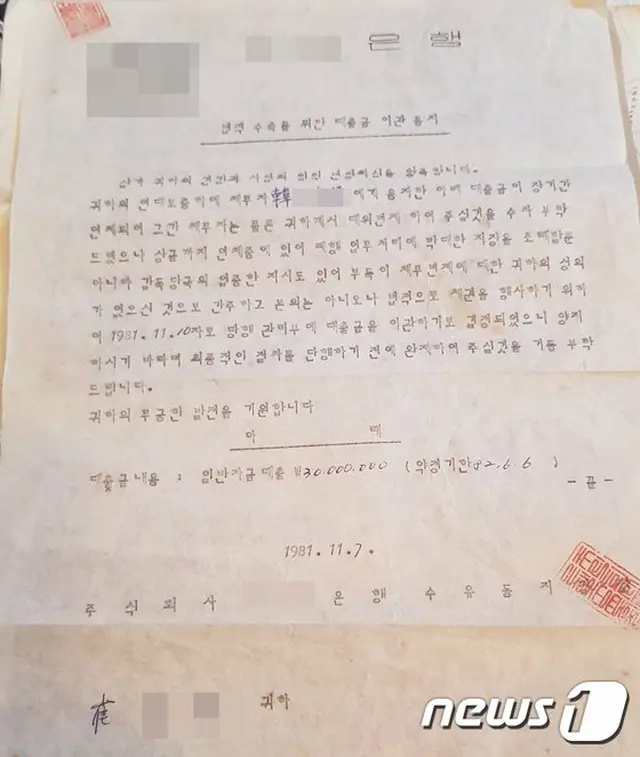 은 행
법적 수속을 위한 대출금 이관 통지
귀하의 연대보증하에 채무자 韓 에게 융자한 아래 대출금이 장기간
연체되어 그간 채무자는 물론 귀하께서 대위변제 하여 주실것을 수차 부탁
드렸으나 상금까지 연체중에 있어 당행 업무처리에 막대한 지장을 초래함은
아니라 감독당국의 엄중한 지시도 있어 부득이 채무변제에 대한 귀하의 성의
가 없으신 것으로 간주하고 본의는 아니오나 법적으로 채권을 행사하기 위하
여 1981.11.10자로 당행 관리부에 대출금을 이관하기로 결정되었으니 양지
하시기 바라며 최종적인 절차를 단행하기 전에 완제하여 주실것을 거듭 부탁
드립니다.
귀하의 무궁한 발전을 기원합니다
아 래
대출금내용 : 일반자금대출 ₩30.000.000 (약정기한82.6.6 )
- 끝 -
1981.11.7.
주 식 회 사 은 행 수 유 동 지
귀하
news1